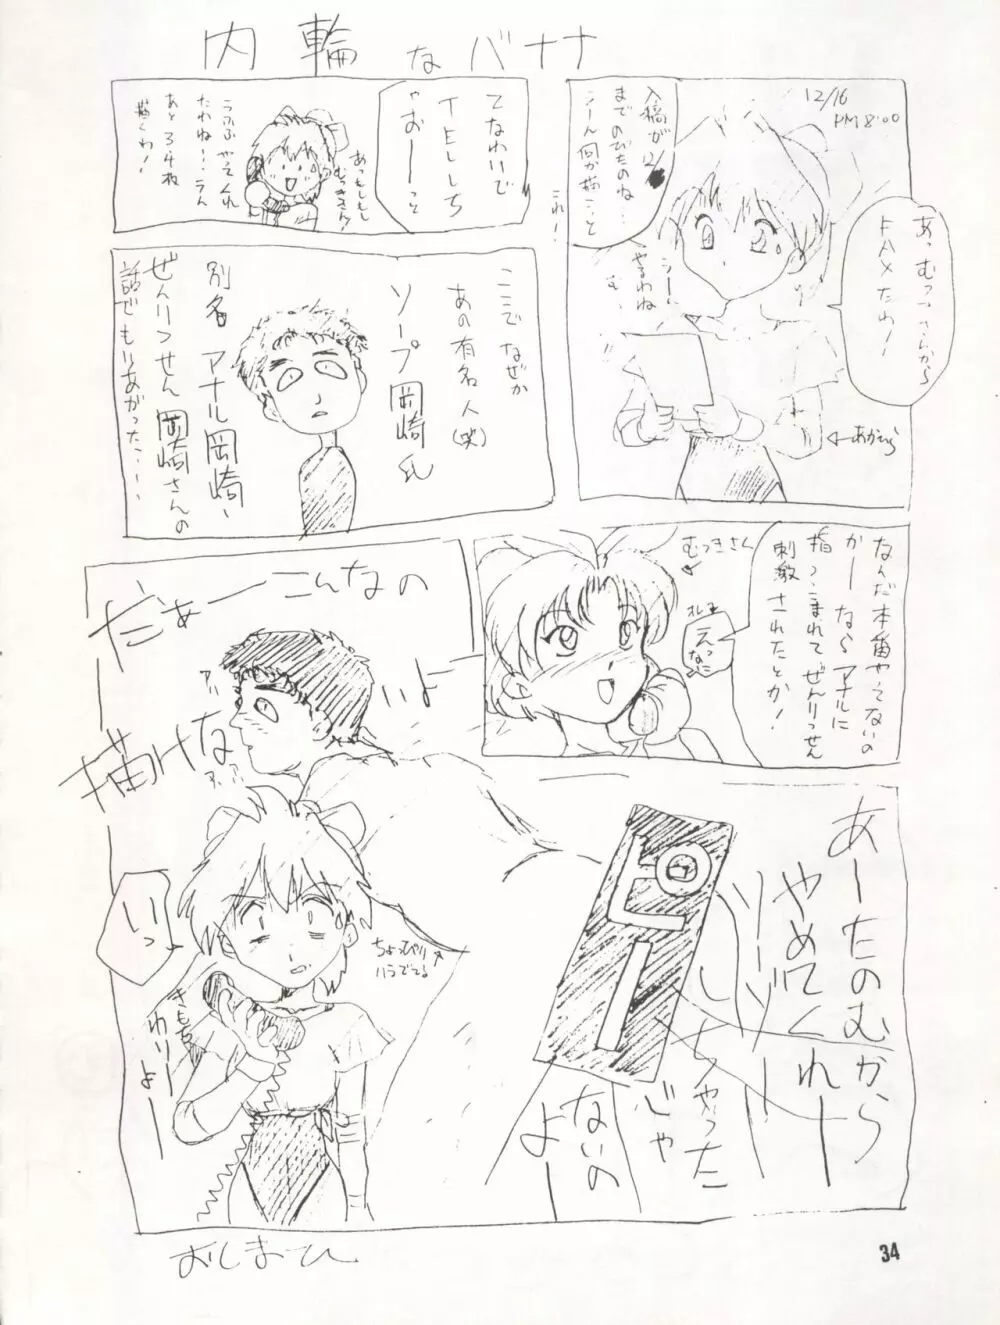 内輪なバナナ
12/16
PM 8:00
あっ むっつさんから
FAXだわ！
入稿が12/
までのびたのね…
うーん何か描こっと
うーん
やるわね
む
これ！
←あかでら
てなわけで
TELしち
ゃおーっと
あっもしもし
むつきさん?
うんんぶやってくれ
たわね！！うん
あと34枚
描くわ！
ここでなぜか
あの有名人(笑)
ソープ岡崎氏
別名 アナル岡崎、
ぜんりつせん岡崎さんの
話でもりあがった…
なんだ本番やってないの
かーなら アナルに
指つっこまれて ぜんりつせん
刺激されたとか！
むつきさん
オレは
えっ
なに
だぁーこんなの
描けないよー
アハ
あーたのむから
やめてくれー
ソーゾー
しちゃった
じゃ
ないの
よー
ピー
ちょっぴり
ハラでてる
いっ
きもち
わりーよー
おしまひ
34